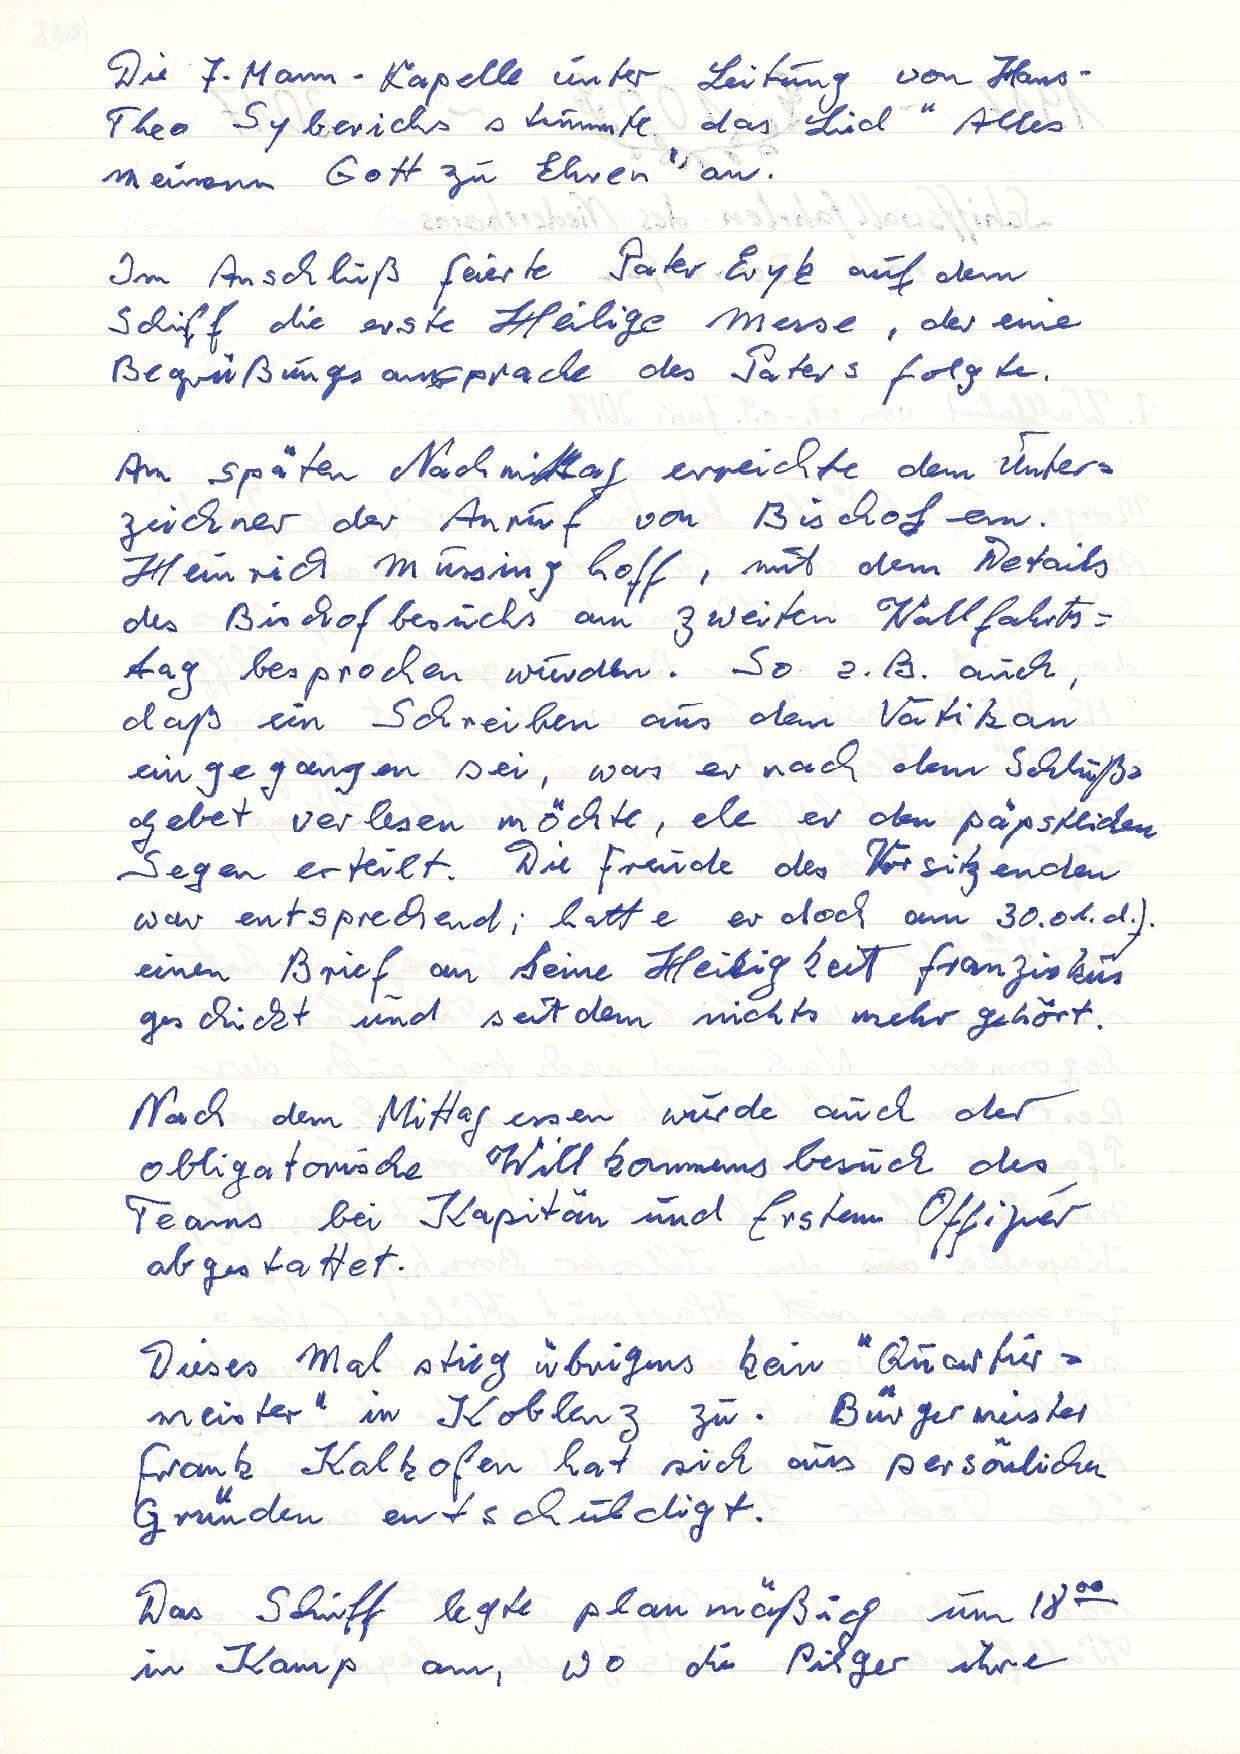 Die 7-Mann-Kapelle unter Leitung von Hans-
Theo Syberichs stimmte das Lied "Alles
meinem Gott zu Ehren" an.
Im Anschluß feierte Pater Eryk auf dem
Schiff die erste Heilige Messe, der eine
Begrüßungsansprache des Paters folgte.
Am späten Nachmittag erreichte dem Unter=
zeichner der Anruf von Bischof em.
Heinrich Müssinghoff, mit dem Details
des Bischofbesuchs am zweiten Wallfahrts=
tag besprochen wurden. So z.B. auch,
daß ein Schreiben aus dem Vatikan
eingegangen sei, was er nach dem Schluß=
gebet verlesen möchte, ehe er den päpstlichen
Segen erteilt. Die Freude des Vorsitzenden
war entsprechend; hatte er doch am 30.01.d.J.
einen Brief an Seine Heiligkeit Franziskus
geschickt und seitdem nichts mehr gehört.
Nach dem Mittagessen wurde auch der
obligatorische Willkommensbesuch des
Teams bei Kapitän und Erstem Offizier
abgestattet.
Dieses Mal stieg übrigens kein "Quartier=
meister" in Koblenz zu. Bürgermeister
Frank Kalkofen hat sich aus persönlichen
Gründen entschuldigt.
Das Schiff legte planmäßig um 18⁰⁰
in Kamp an, wo die Pilger ihre